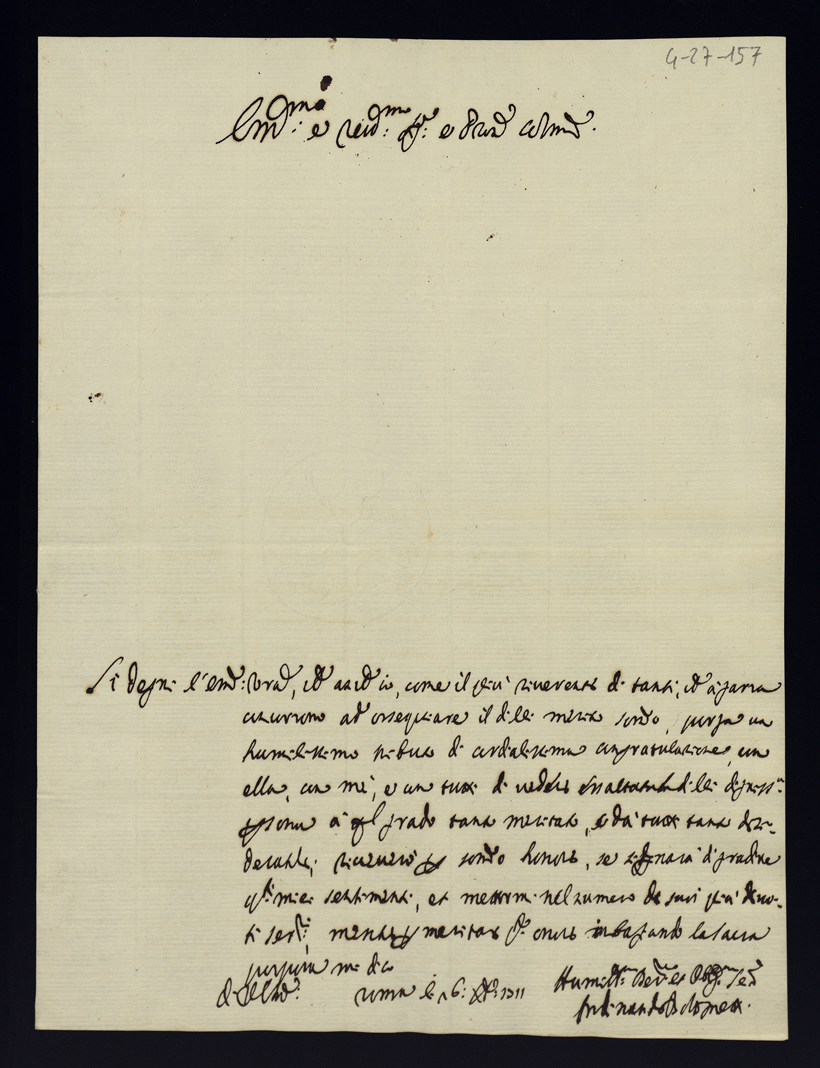 4-27-157
Em.mo e Rev.mo Sig.r e Pron Col.mo
Si degni l'Em: Vra, ch'anch'io, come il più riverente di tanti, ch'a gara
concorrono ad ossequiare il di lei merito sommo, porga un
humilissimo tributo di cordialissima congratulatione con
ella, con me, e con tutti di vedere essaltata la di lei degniss.ma
persona a quel grado tanto meritato, e da tutti tanto desi-
derato; riceverò per sommo honore, se si degnarà di gradire
questi miei sentimenti, et mettermi nel numero de suoi più devo-
ti ser.ri, mentre per meritar quest' onore la sacra
porpora me dico
Di V. Em.
Roma li 16:
Humiliss.mo Dev.mo et Obl.mo Ser.
Ferdinando